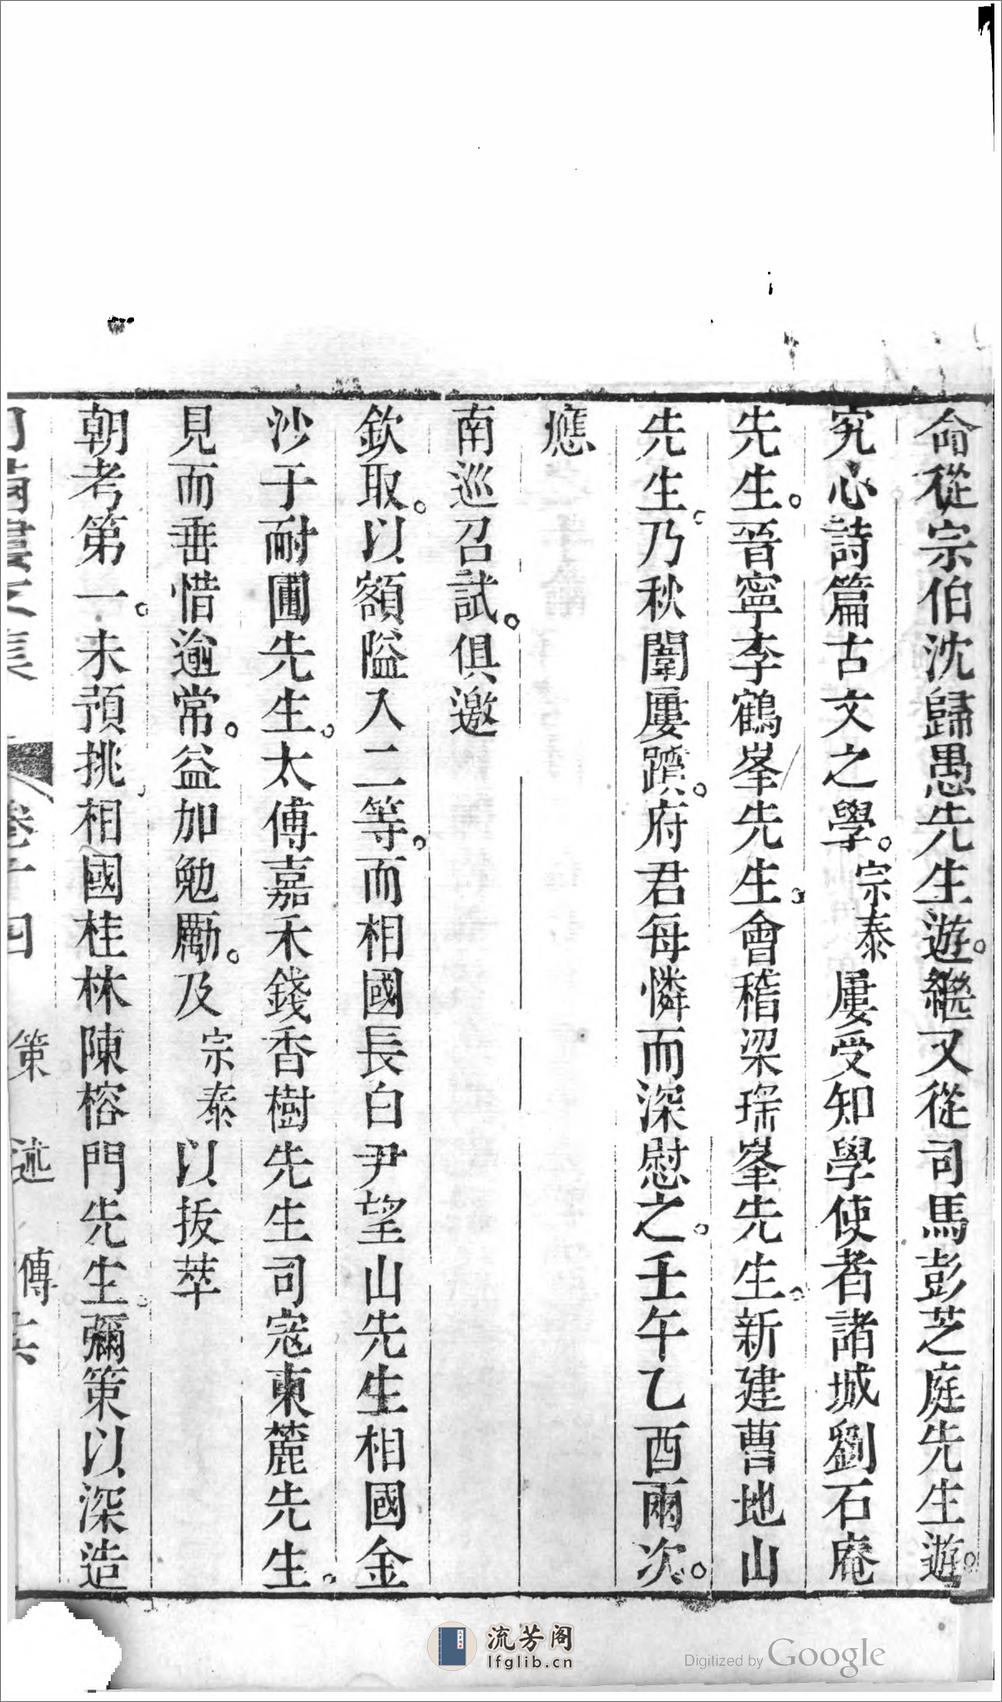 命從宗伯沈歸愚先生遊。繼又從司馬彭芝庭先生遊。
究心詩篇古文之學。宗泰屢受知學使者諸城劉石庵
先生。晉寧李鶴峯先生。會稽梁瑶峯先生。新建曹地山
先生。乃秋闈屢躓。府君每憐而深慰之。壬午乙酉兩次。
應
南巡召試。俱邀
欽取。以額隘入二等。而相國長白尹望山先生相國金
沙于耐圃先生。太傅嘉禾錢香樹先生司寇東麓先生。
見而垂惜逾常。益加勉勵。及宗泰以拔萃
朝考第一。未預挑。相國桂林陳榕門先生。彌策以深造
文集 卷十四 策 述 傳
流芳阁
lfglib.cn
Digitized by Google